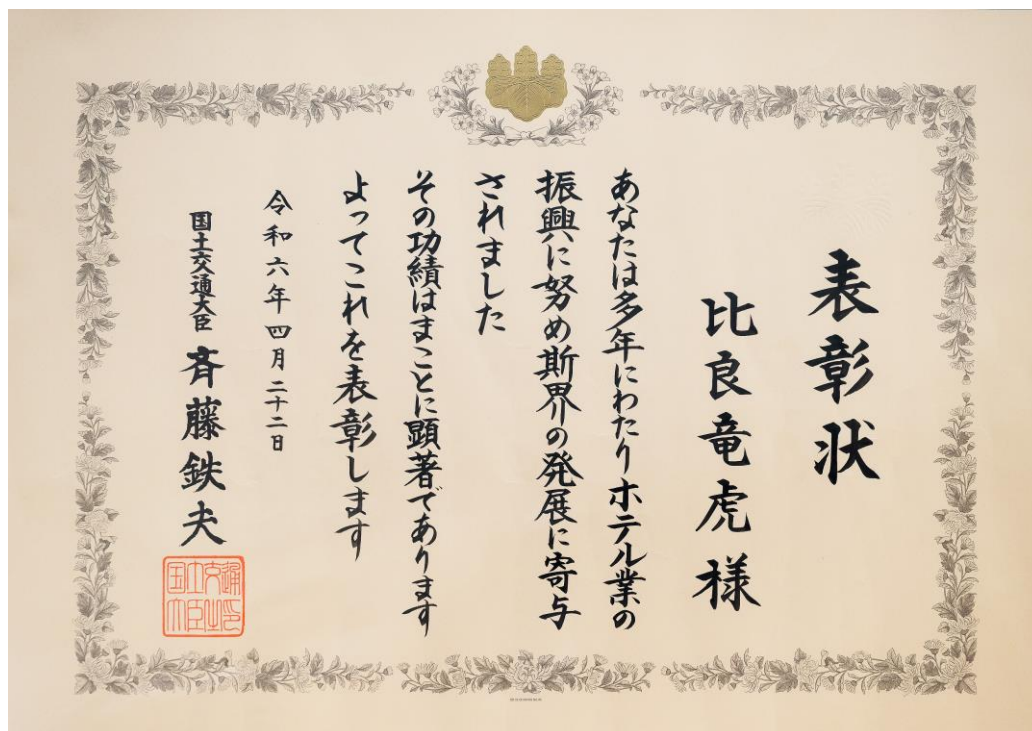 表彰状
比良竜虎様
あなたは多年にわたりホテル業の
振興に努め斯界の発展に寄与
されました
その功績はまことに顕著であります
よってこれを表彰します
令和六年四月二十二日
国土交通大臣 斉藤鉄夫
国土交通大臣之印